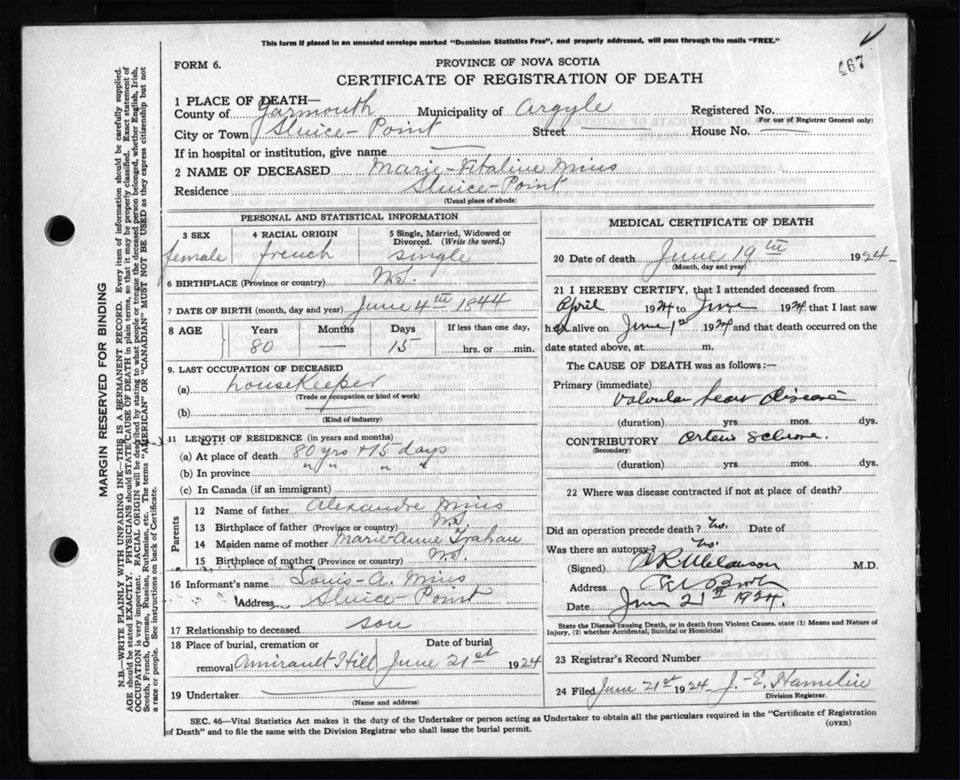 This form if placed in an unsealed envelope marked "Dominion Statistics Free", and properly addressed, will pass through the mails "FREE."
467
FORM 6.
PROVINCE OF NOVA SCOTIA
CERTIFICATE OF REGISTRATION OF DEATH
1 PLACE OF DEATH—
County of Yarmouth Municipality of Argyle Registered No.
(For use of Registrar General only)
City or Town Sluice-Point Street House No.
If in hospital or institution, give name
2 NAME OF DECEASED Marie-Vitaline Mius
Residence Sluice-Point
(Usual place of abode)
PERSONAL AND STATISTICAL INFORMATION
3 SEX 4 RACIAL ORIGIN 5 Single, Married, Widowed or Divorced. (Write the word.)
female french single
6 BIRTHPLACE (Province or country) N.S.
7 DATE OF BIRTH (month, day and year) June 4th 1844
8 AGE Years Months Days If less than one day,
80 — 15 hrs. or min.
9. LAST OCCUPATION OF DECEASED
(a) housekeeper
(Trade or occupation or kind of work)
(b)
(Kind of industry)
11 LENGTH OF RESIDENCE (in years and months)
(a) At place of death 80 yrs + 15 days
(b) In province " " " "
(c) In Canada (if an immigrant)
Parents
12 Name of father Alexandre Mius
13 Birthplace of father (Province or country) N.S.
14 Maiden name of mother Marie-Anne Trahan
15 Birthplace of mother (Province or country) N.S.
16 Informant's name Louis-A. Mius
Address Sluice-Point
17 Relationship to deceased son
18 Place of burial, cremation or removal Date of burial
Amirault Hill June 21st 1924
19 Undertaker
(Name and address)
MEDICAL CERTIFICATE OF DEATH
20 Date of death June 19th 1924
(Month, day and year)
21 I HEREBY CERTIFY, that I attended deceased from
April 1924 to June 1924 that I last saw
her alive on June 1st 1924 and that death occurred on the
date stated above, at m.
The CAUSE OF DEATH was as follows:—
Primary (immediate)
Valvular heart disease
(duration) yrs. mos. dys.
CONTRIBUTORY
(Secondary)
(duration) yrs. mos. dys.
22 Where was disease contracted if not at place of death?
Did an operation precede death? No. Date of
Was there an autopsy? No.
(Signed) M.D.
Address
Date June 21st 1924.
State the Disease causing Death, or in death from Violent Causes, state (1) Means and Nature of Injury, (2) whether Accidental, Suicidal or Homicidal
23 Registrar's Record Number
24 Filed June 21st 1924 J.-E. Hamelin
Division Registrar.
SEC. 46—Vital Statistics Act makes it the duty of the Undertaker or person acting as Undertaker to obtain all the particulars required in the "Certificate of Registration
of Death" and to file the same with the Division Registrar who shall issue the burial permit.
(OVER)
MARGIN RESERVED FOR BINDING
N.B.—WRITE PLAINLY WITH UNFADING INK—THIS IS A PERMANENT RECORD. Every item of information should be carefully supplied.
AGE should be stated EXACTLY. PHYSICIANS should STATE CAUSE OF DEATH in plain terms, so that it may be properly classified. Exact statement of
OCCUPATION is very important. RACIAL ORIGIN will be described by stating to what people or tongue the deceased person belonged, whether English, Irish,
Scotch, French, German, Russian, Ruthenian, etc. The terms "AMERICAN" OR "CANADIAN" MUST NOT BE USED as they express citizenship but not
a race or people. See instructions on back of Certificate.